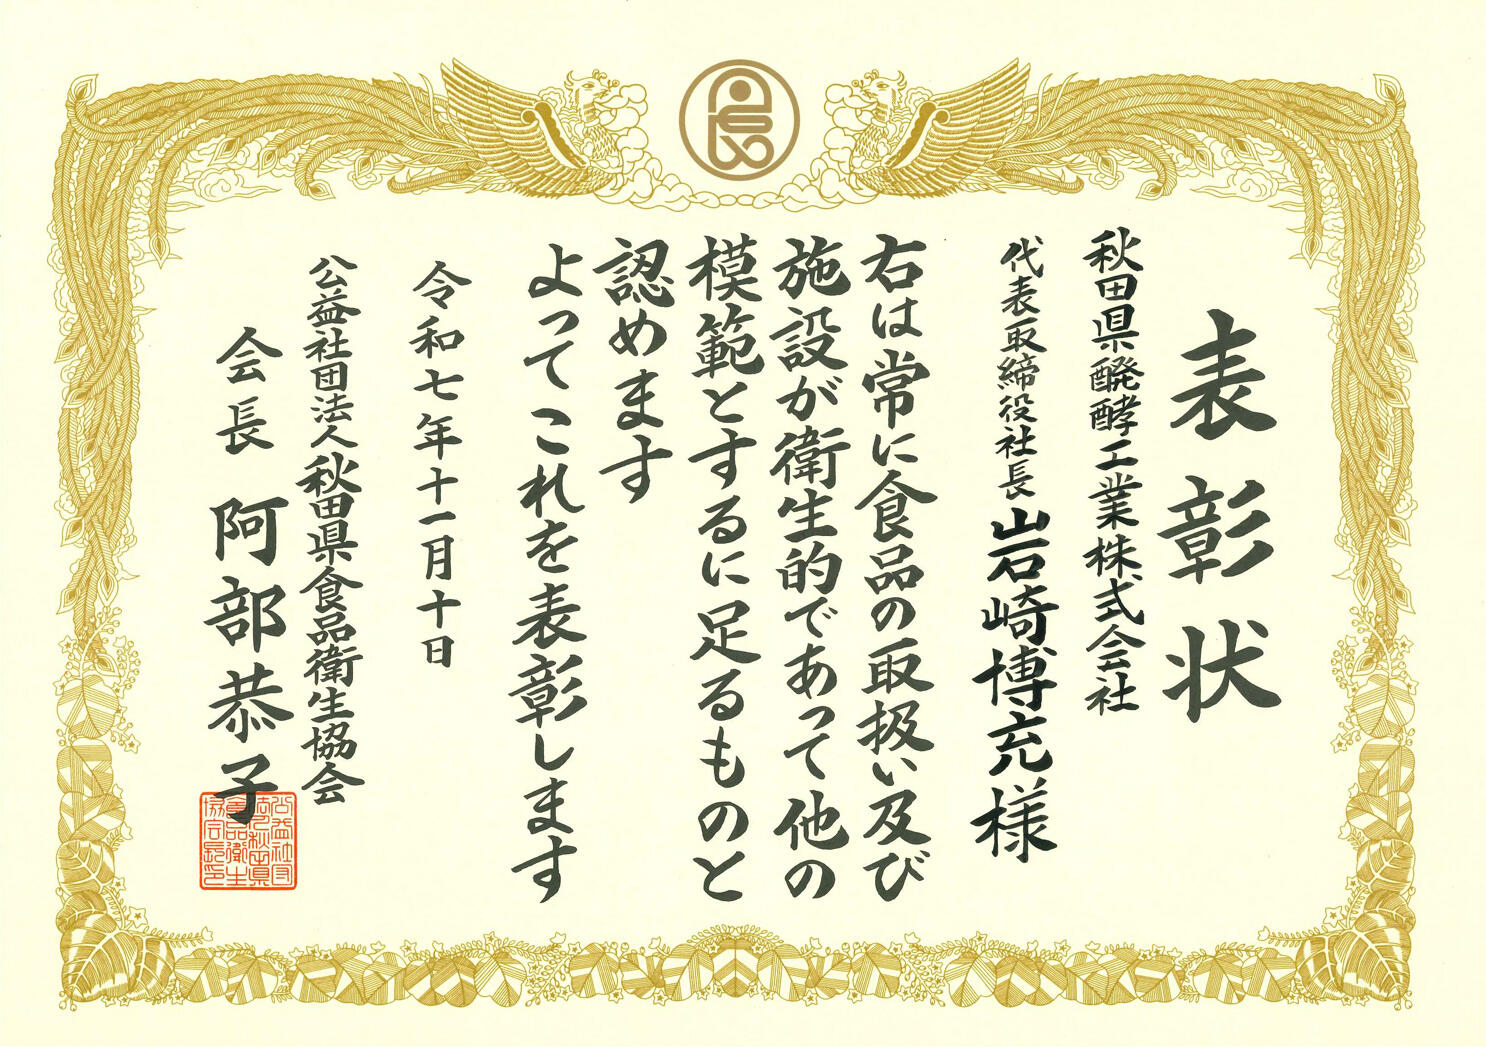 表彰状
秋田県醗酵工業株式会社
代表取締役社長 岩崎博充様
右は常に食品の取扱い及び
施設が衛生的であって他の
模範とするに足るものと
認めます
よってこれを表彰します
令和七年十一月十日
公益社団法人秋田県食品衛生協会
会長 阿部恭子
公益社団
法人秋田県
食品衛生
協会長印